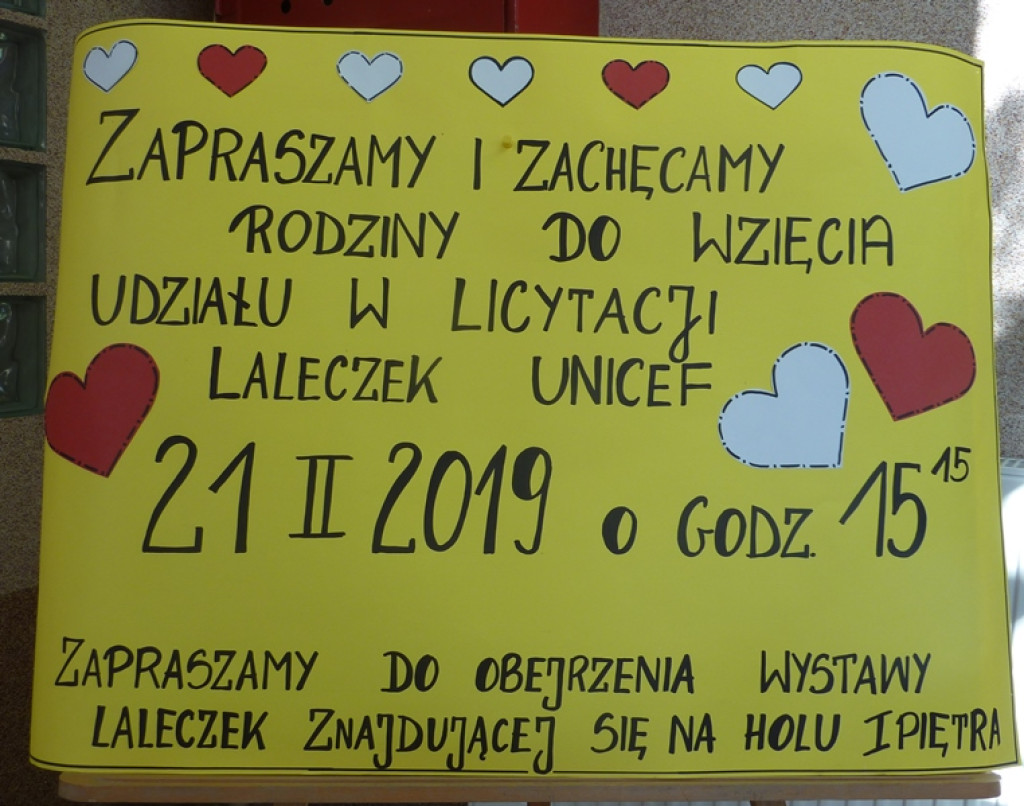 ZAPRASZAMY I ZACHĘCAMY
RODZINY DO WZIĘCIA
UDZIAŁU W LICYTACJI
LALECZEK UNICEF
21 II 2019 O GODZ. 15 15
ZAPRASZAMY DO OBEJRZENIA WYSTAWY
LALECZEK ZNAJDUJĄCEJ SIĘ NA HOLU I PIĘTRA